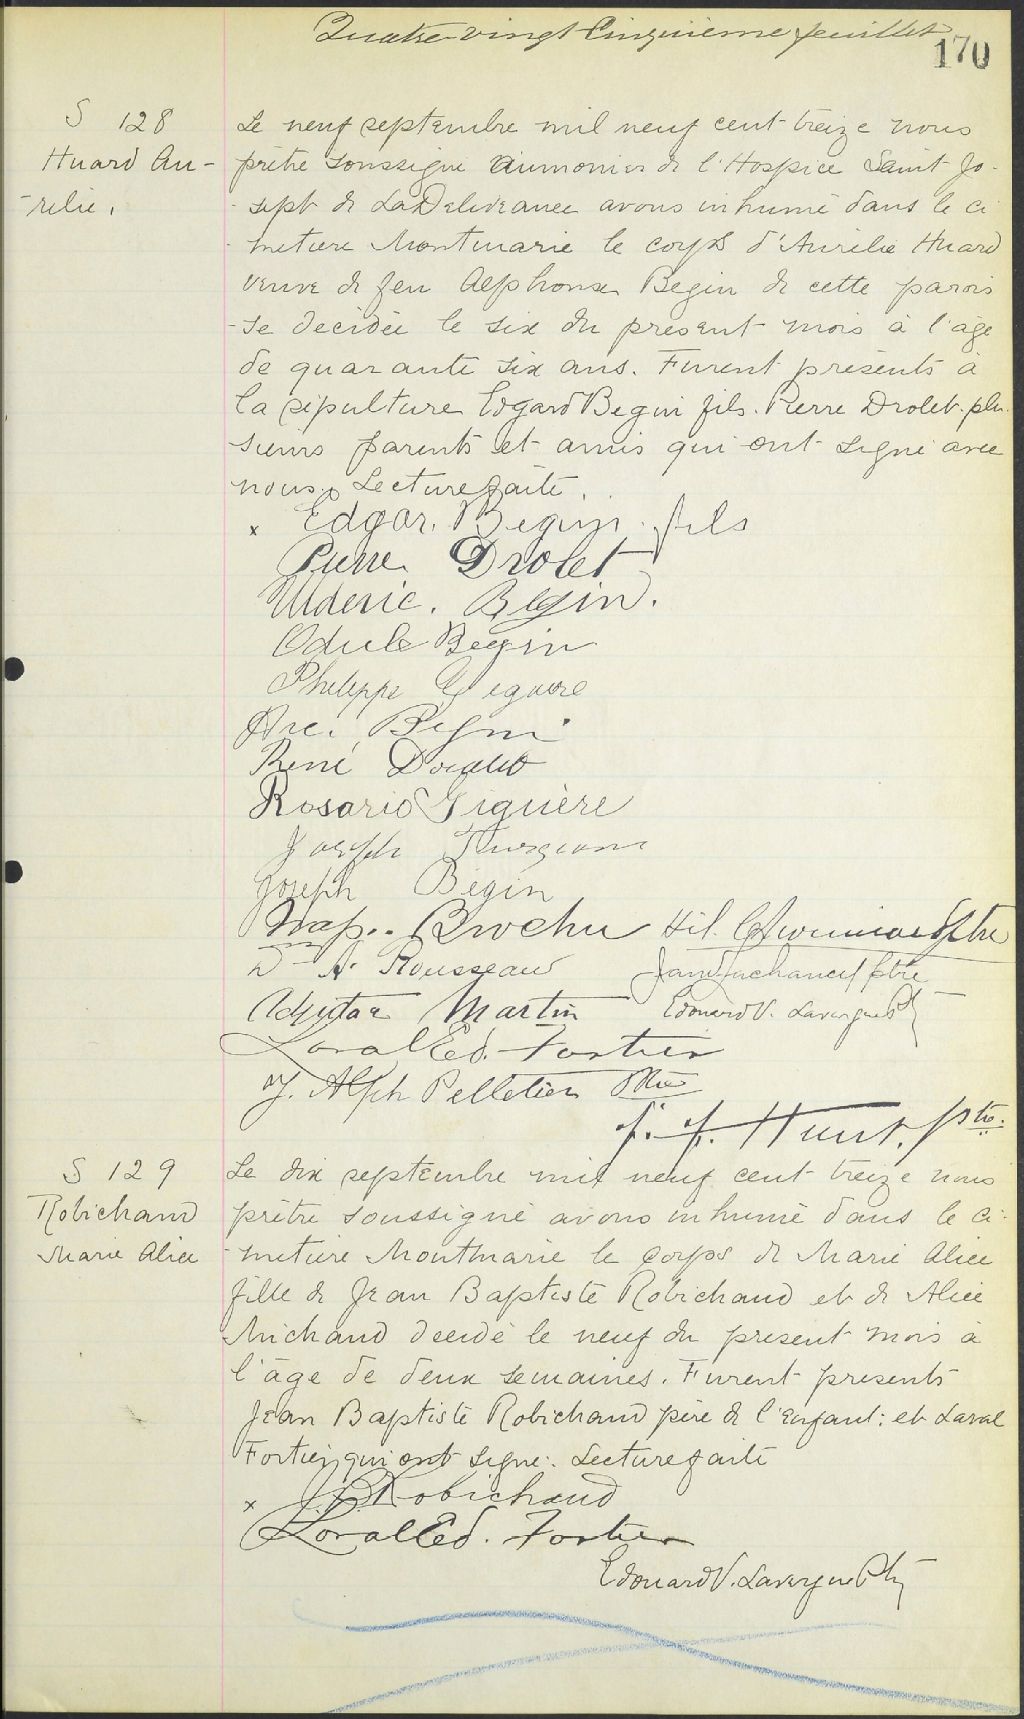 Quatre-vingt Cinquième feuillet
170
S 128
Huard Au-
-rélie.
Le neuf septembre mil neuf cent treize nous
prêtre soussigné aumonier de l'Hospice Saint Jo-
-seph de La Delivrance avons inhumé dans le ci
-metière Montmarie le corps d'Aurélie Huard
veuve de feu Alphonse Begin de cette parois
-se décédée le six du présent mois à l'âge
de quarante six ans. Furent présents à
la sépulture Edgard Begin fils. Pierre Drolet. plu-
sieurs parents et amis qui ont signé avec
nous. Lecture faite.
x Edgar. Begin. fils
Pierre Drolet
Ulderic. Begin.
Odule Begin
Philippe Giguère
Begin
René Drolet
Rosario Giguère
Joseph Turgeon
Joseph Bégin
Nap.. Brochu
Hil. ptre
Dr A. Rousseau
ptre
Adjutor Martin
Edouard V. Lavergne Ptr
Laval Ed. Fortier
J. Alph Pelletier Ptre
J. J. Hunt. ptre.
S 129
Robichaud
Marie Alice
Le dix septembre mil neuf cent treize nous
prêtre soussigné avons inhumé dans le ci-
-metière Montmarie le corps de Marie Alice
fille de Jean Baptiste Robichaud et de Alice
Michaud décédé le neuf du présent mois à
l'âge de deux semaines. Furent présents
Jean Baptiste Robichaud père de l'enfant: et Laval
Fortier qui ont signé. Lecture faite
x J B Robichaud
Laval Ed. Fortier
Edouard V. Lavergne Ptr